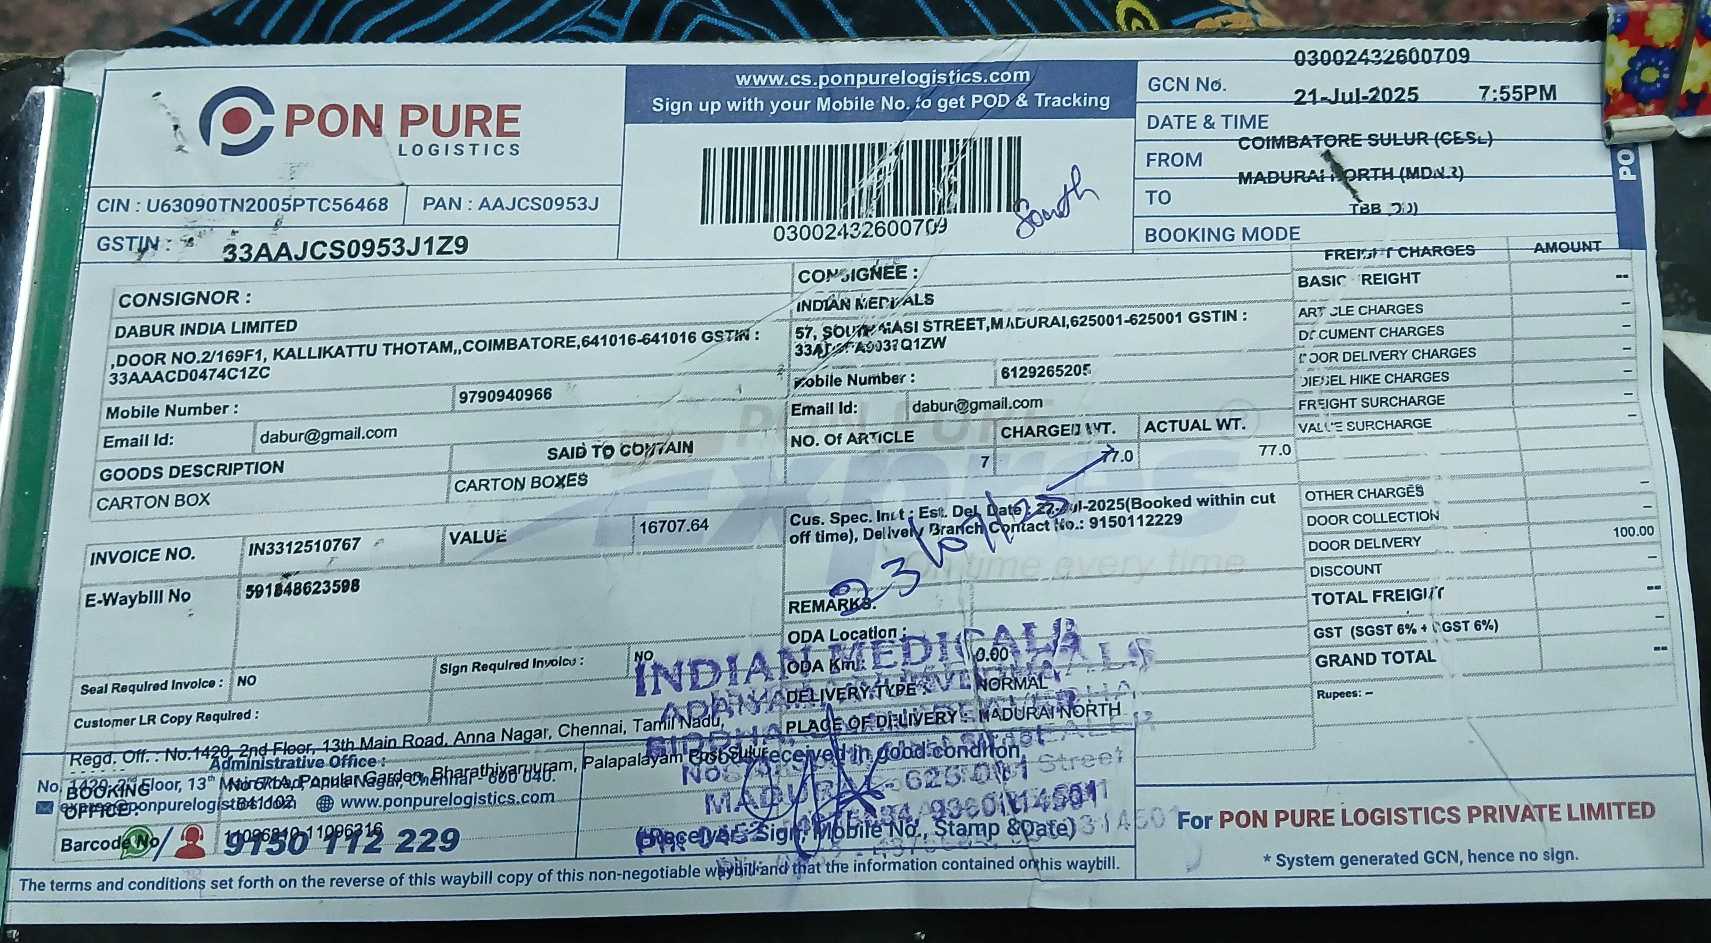 PON PURE
LOGISTICS
CIN : U63090TN2005PTC56468
PAN : AAJCS0953J
GSTIN :
33AAJCS0953J1Z9
www.cs.ponpurelogistics.com
Sign up with your Mobile No. to get POD & Tracking
03002432600709
South
03002432600709
GCN No.
21-Jul-2025 7:55PM
DATE & TIME
COIMBATORE SULUR (CESL)
FROM
MADURAI NORTH
TO
TBB
BOOKING MODE
PO
CONSIGNOR :
DABUR INDIA LIMITED
,DOOR NO.2/169F1, KALLIKATTU THOTAM,,COIMBATORE,641016-641016 GSTIN :
33AAACD0474C1ZC
Mobile Number : 9790940966
Email Id: dabur@gmail.com
GOODS DESCRIPTION SAID TO CONTAIN
CARTON BOX CARTON BOXES
INVOICE NO. IN3312510767 VALUE 16707.64
E-Waybill No 591848623598
Seal Required Invoice : NO Sign Required Invoice : NO
Customer LR Copy Required :
CONSIGNEE :
INDIAN MEDICALS
57, SOUTH MASI STREET,MADURAI,625001-625001 GSTIN :
Mobile Number : 6129265205
Email Id: dabur@gmail.com
NO. Of ARTICLE CHARGED WT. ACTUAL WT.
7 77.0 77.0
Cus. Spec. Inst : Est. Del. Date : 22-Jul-2025(Booked within cut
off time), Delivery Branch Contact No.: 9150112229
23/07/25
REMARKS:
ODA Location :
ODA Km : 0.00
DELIVERY TYPE : NORMAL
PLACE OF DELIVERY : MADURAI NORTH
FREIGHT CHARGES AMOUNT
BASIC FREIGHT --
ARTICLE CHARGES –
DOCUMENT CHARGES –
DOOR DELIVERY CHARGES –
DIESEL HIKE CHARGES –
FREIGHT SURCHARGE –
VALUE SURCHARGE –
OTHER CHARGES –
DOOR COLLECTION –
DOOR DELIVERY 100.00
DISCOUNT –
TOTAL FREIGHT --
GST (SGST 6% + CGST 6%) –
GRAND TOTAL --
Rupees: –
INDIAN MEDICALS
MADURAI - 625 001
Regd. Off. : No.1420, 2nd Floor, 13th Main Road, Anna Nagar, Chennai, Tamil Nadu,
Administrative Office :
No. 1420, 2nd Floor, 13th Main Road, Anna Nagar, Chennai - 600 040.
BOOKING OFFICE :
No 571A, Popular Garden, Bharathiyarpuram, Palapalayam Post, Sulur
641102
express@ponpurelogistics.com www.ponpurelogistics.com
Barcode No
11096310-11096316
9150 112 229
Goods received in good condition
(Receiver Sign, Mobile No., Stamp &Date)
For PON PURE LOGISTICS PRIVATE LIMITED
* System generated GCN, hence no sign.
The terms and conditions set forth on the reverse of this waybill copy of this non-negotiable waybill and that the information contained on this waybill.